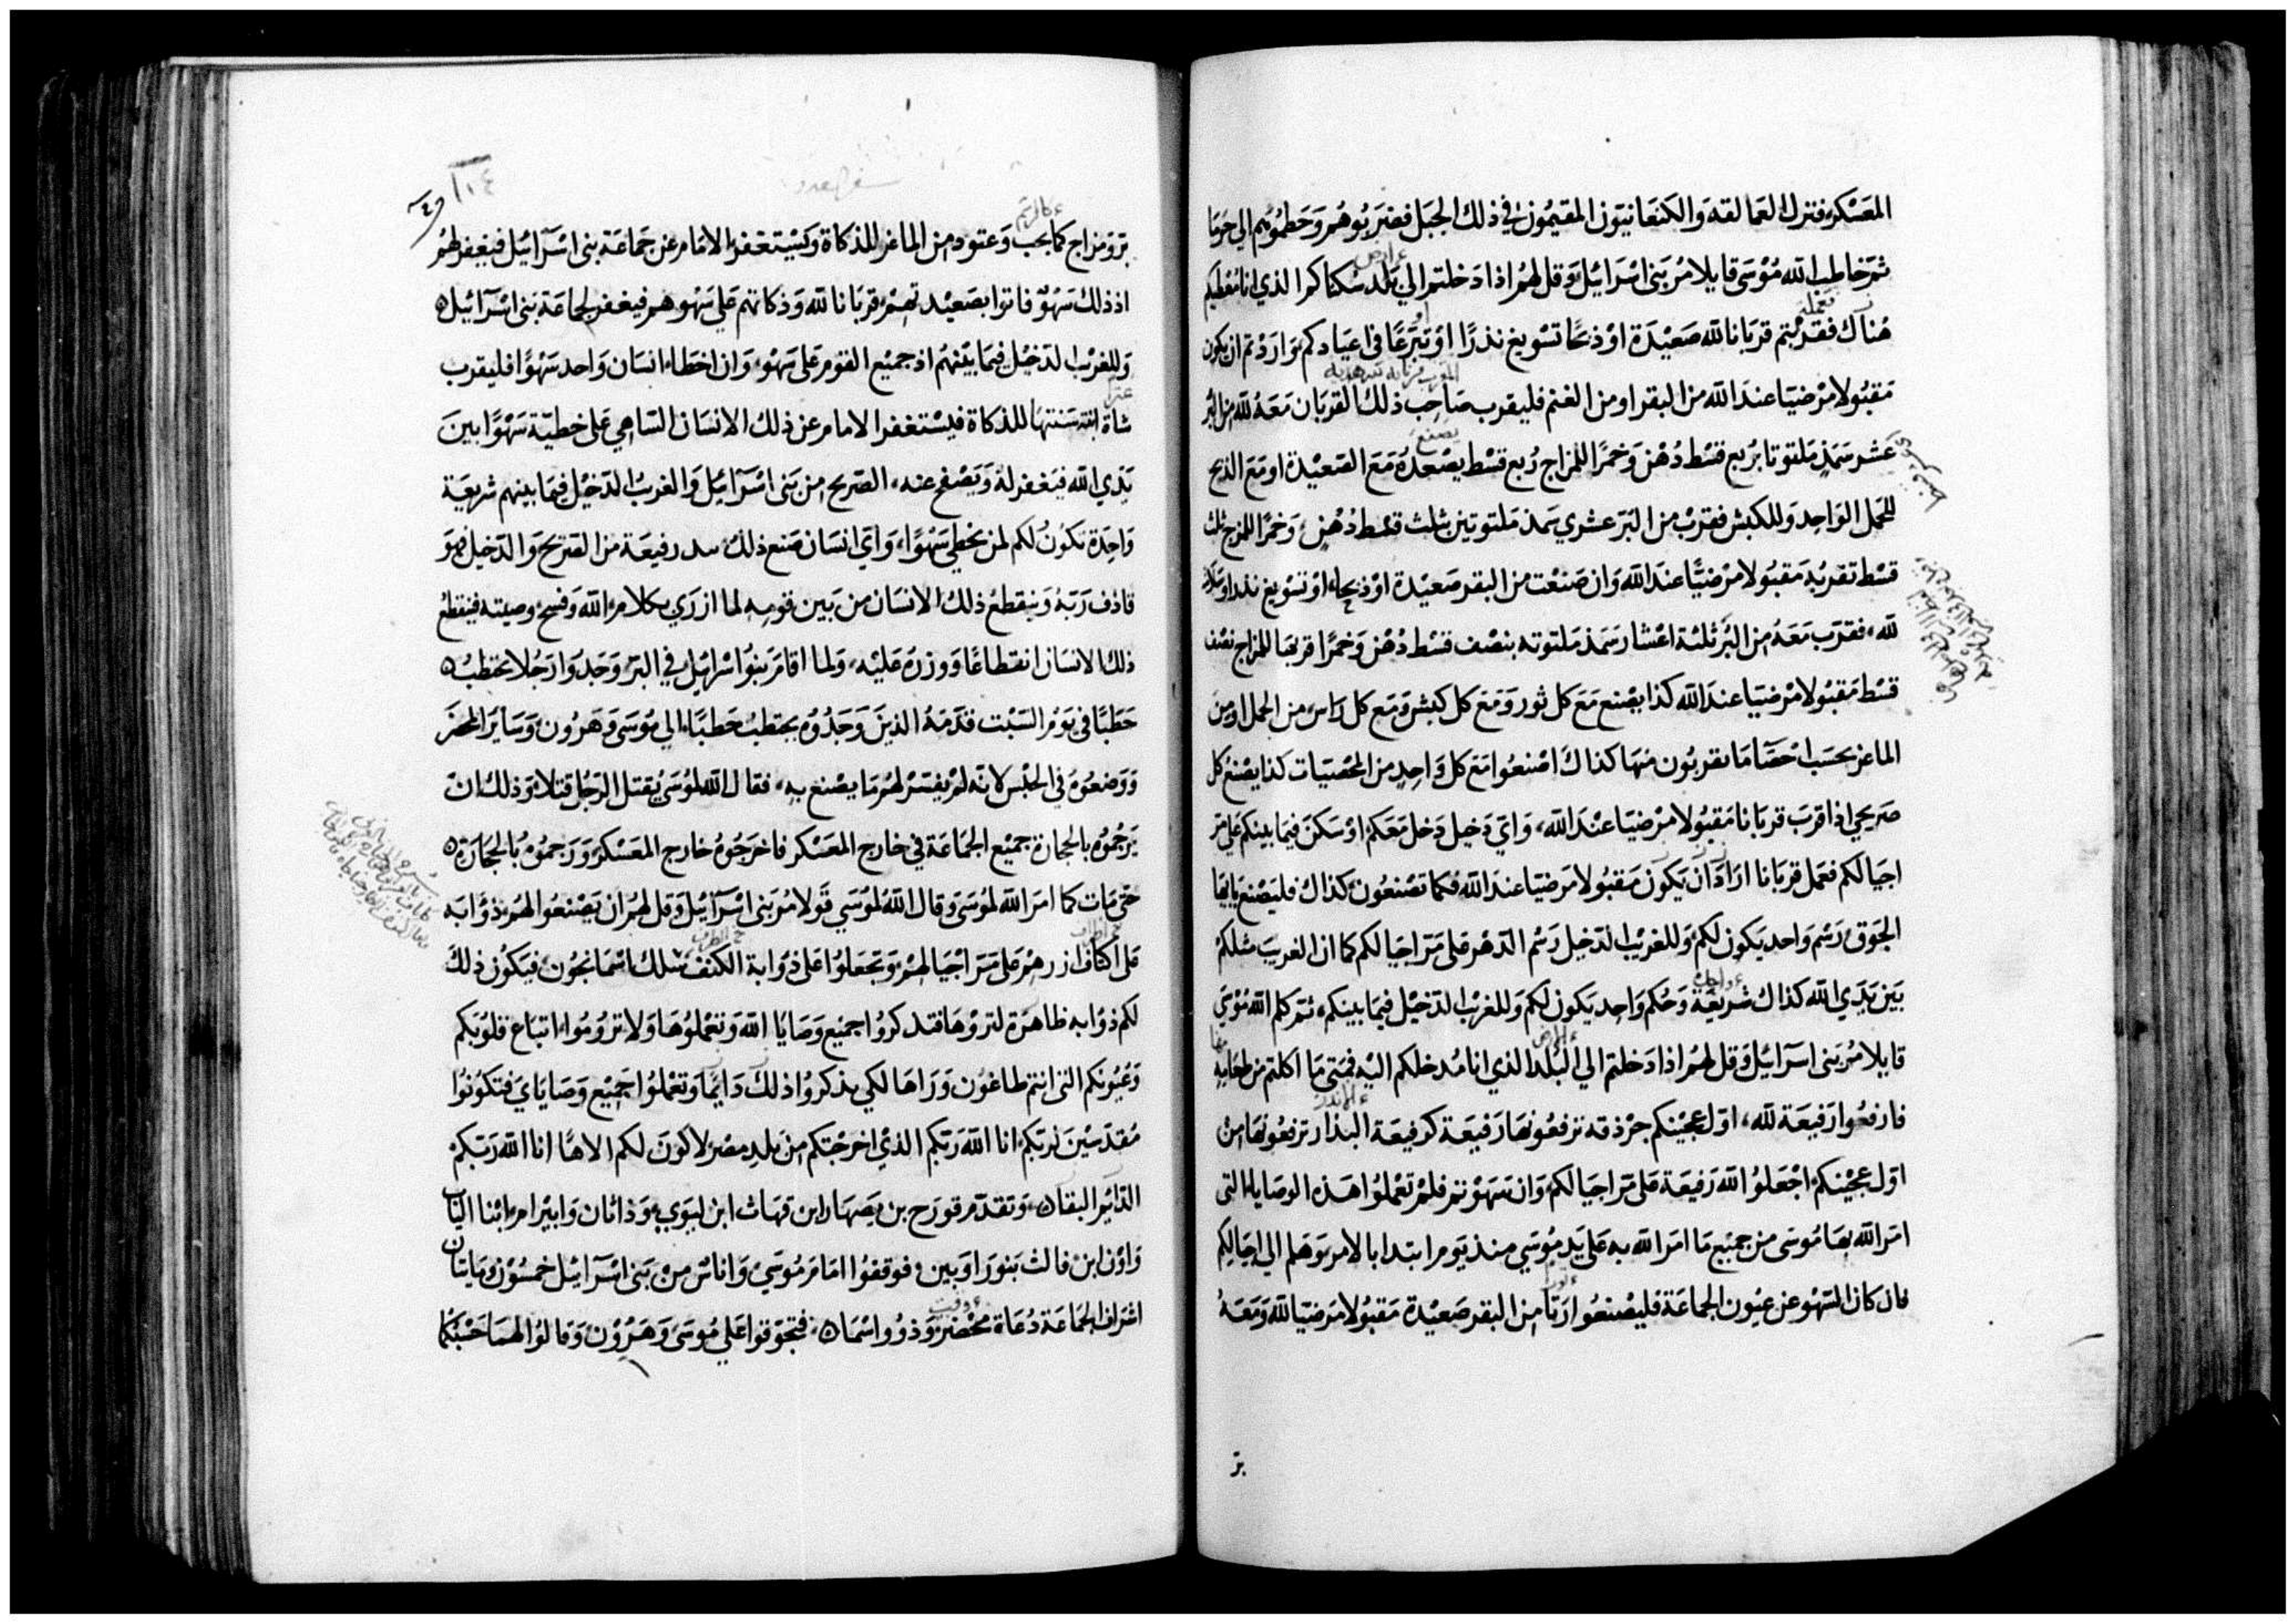 المعسكر فنزل العمالقه والكنعانيون المقيمون في ذلك الجبل فضربوهم وحطموهم الي حرما
ثم خاطب الله موسى قايلا مر بني اسرائيل وقل لهم اذا دخلتم الي بلد سكناكم الذي انا معطيكم
هناك فقدمتم قربانا لله صعيدة او ذبحا تسويغ نذرا او تبرعا في اعيادكم واردتم ان يكون
مقبولا مرضيا عند الله من البقر او من الغنم فليقرب صاحب ذلك القربان معه لله من البر
عشر سمذ ملتوتا بربع قسط دهن وخمرا للمزاج ربع قسط يصعده مع الصعيدة او مع الذبح
للحمل الواحد وللكبش فقرب من البر عشري سمذ ملتوتين بثلث قسط دهن وخمرا للمزج ثلث
قسط تقربه مقبولا مرضيا عند الله وان صنعت من البقر صعيدة او ذبحا او تسويغ نذر او سلامة
لله فقرب معه من البر ثلثة اعشار سمذ ملتوته بنصف قسط دهن وخمرا قربها للمزاج نصف
قسط مقبولا مرضيا عند الله كذا يصنع مع كل ثور ومع كل كبش ومع كل راس من الحمل او من
الماعز بحسب احصا ما تقربون منها كذاك اصنعوا مع كل واحد من المحصيات كذا يصنع كل
صريحي اذا قرب قربانا مقبولا مرضيا عند الله واي دخيل دخل معكم او سكن فيما بينكم علي مر
اجيالكم فعمل قربانا اراد ان يكون مقبولا مرضيا عند الله فكما تصنعون كذاك فليصنع يا ايها
الجوق رسم واحد يكون لكم وللغريب الدخيل رسم الدهر على مر اجيالكم كما ان الغريب مثلكم
بين يدي الله كذاك شريعة وحكم واحد يكون لكم وللغريب الدخيل فيما بينكم ثم كلم الله موسي
قايلا مر بني اسرائيل وقل لهم اذا دخلتم الي البلد الذي انا مدخلكم اليه فمتى ما اكلتم من طعامه
فارفعوا رفيعة لله اول عجينكم جرذقه ترفعونها رفيعة كرفيعة البذار ترفعونها من
اول عجينكم اجعلوا الله رفيعة على مر اجيالكم وان سهوتم فلم تعملوا هذه الوصايا التي
امر الله بها موسى من جميع ما امر الله به على يد موسي منذ يوم ابتدا بالامر وهلم الي اجيالكم
فان كان السهو عن عيون الجماعة فليصنعوا رتا من البقر صعيدة مقبولا مرضيا لله ومعه
بر
١١٤
بر ومزاج كما يجب وعتود من الماعز للذكاة ويستغفر الامام عن جماعة بني اسرائيل فيغفر لهم
اذ ذلك سهو فاتوا بصعيدتهم قربانا لله وذكاتهم على سهوهم فيغفر لجماعة بني اسرائيل
وللغريب الدخيل فيما بينهم اذ جميع القوم على سهو وان اخطا انسان واحد سهوا فليقرب
شاة ابنة سنتها للذكاة فيستغفر الامام عن ذلك الانسان الساهي على خطية سهوا بين
يدي الله فيغفر له ويصفح عنه الصريح من بني اسرائيل والغريب الدخيل فيما بينهم شريعة
واحدة تكون لكم لمن يخطي سهوا واي انسان صنع ذلك بيد رفيعة من الصريح والدخيل هو
قاذف ربه وينقطع ذلك الانسان من بين قومه لما ازري بكلام الله وفسخ وصيته فينقطع
ذلك الانسان انقطاعا ووزره عليه ولما اقام بنوا اسرائيل في البر وجدوا رجلا يحتطب
حطبا في يوم السبت قدمه الذين وجدوه يحتطب حطبا الي موسى وهرون وساير المحضر
ووضعوه في الحبس لانه لم يفسر لهم ما يصنع به فقال الله لموسى يقتل الرجل قتلا وذلك ان
يرجموه بالحجارة جميع الجماعة في خارج المعسكر فاخرجوه خارج المعسكر ورجموه بالحجارة
حتى مات كما امر الله لموسى وقال الله لموسي قولا مر بني اسرائيل وقل لهم ان يصنعوا لهم ذؤابه
على اكتاف ازرهم على مر اجيالهم وتجعلوا على ذؤابة الكنف سلك اسمانجون فيكون ذلك
لكم ذؤابه ظاهرة لتروها فتدكروا جميع وصايا الله وتعملوها ولا تروموا اتباع قلوبكم
وعيونكم التي انتم طاغون وراها لكي يذكروا ذلك دايما وتعملوا جميع وصاياي فتكونوا
مقدسين لربكم انا الله ربكم الذي اخرجتكم من بلد مصر لاكون لكم الاها انا الله ربكم
الدايم البقا وتقدم قورح بن يصهار ابن قهاث ابن ليوي وذاثان وابيرام ابنا الياب
واون ابن فالث بنو راوبين فوقفوا امام موسي واناس من بني اسرائيل خمسون ومايتان
اشراف الجماعة دعاة محضر وذوو اسما فتجوقوا علي موسى وهرون وقالوا لهما حسبكما